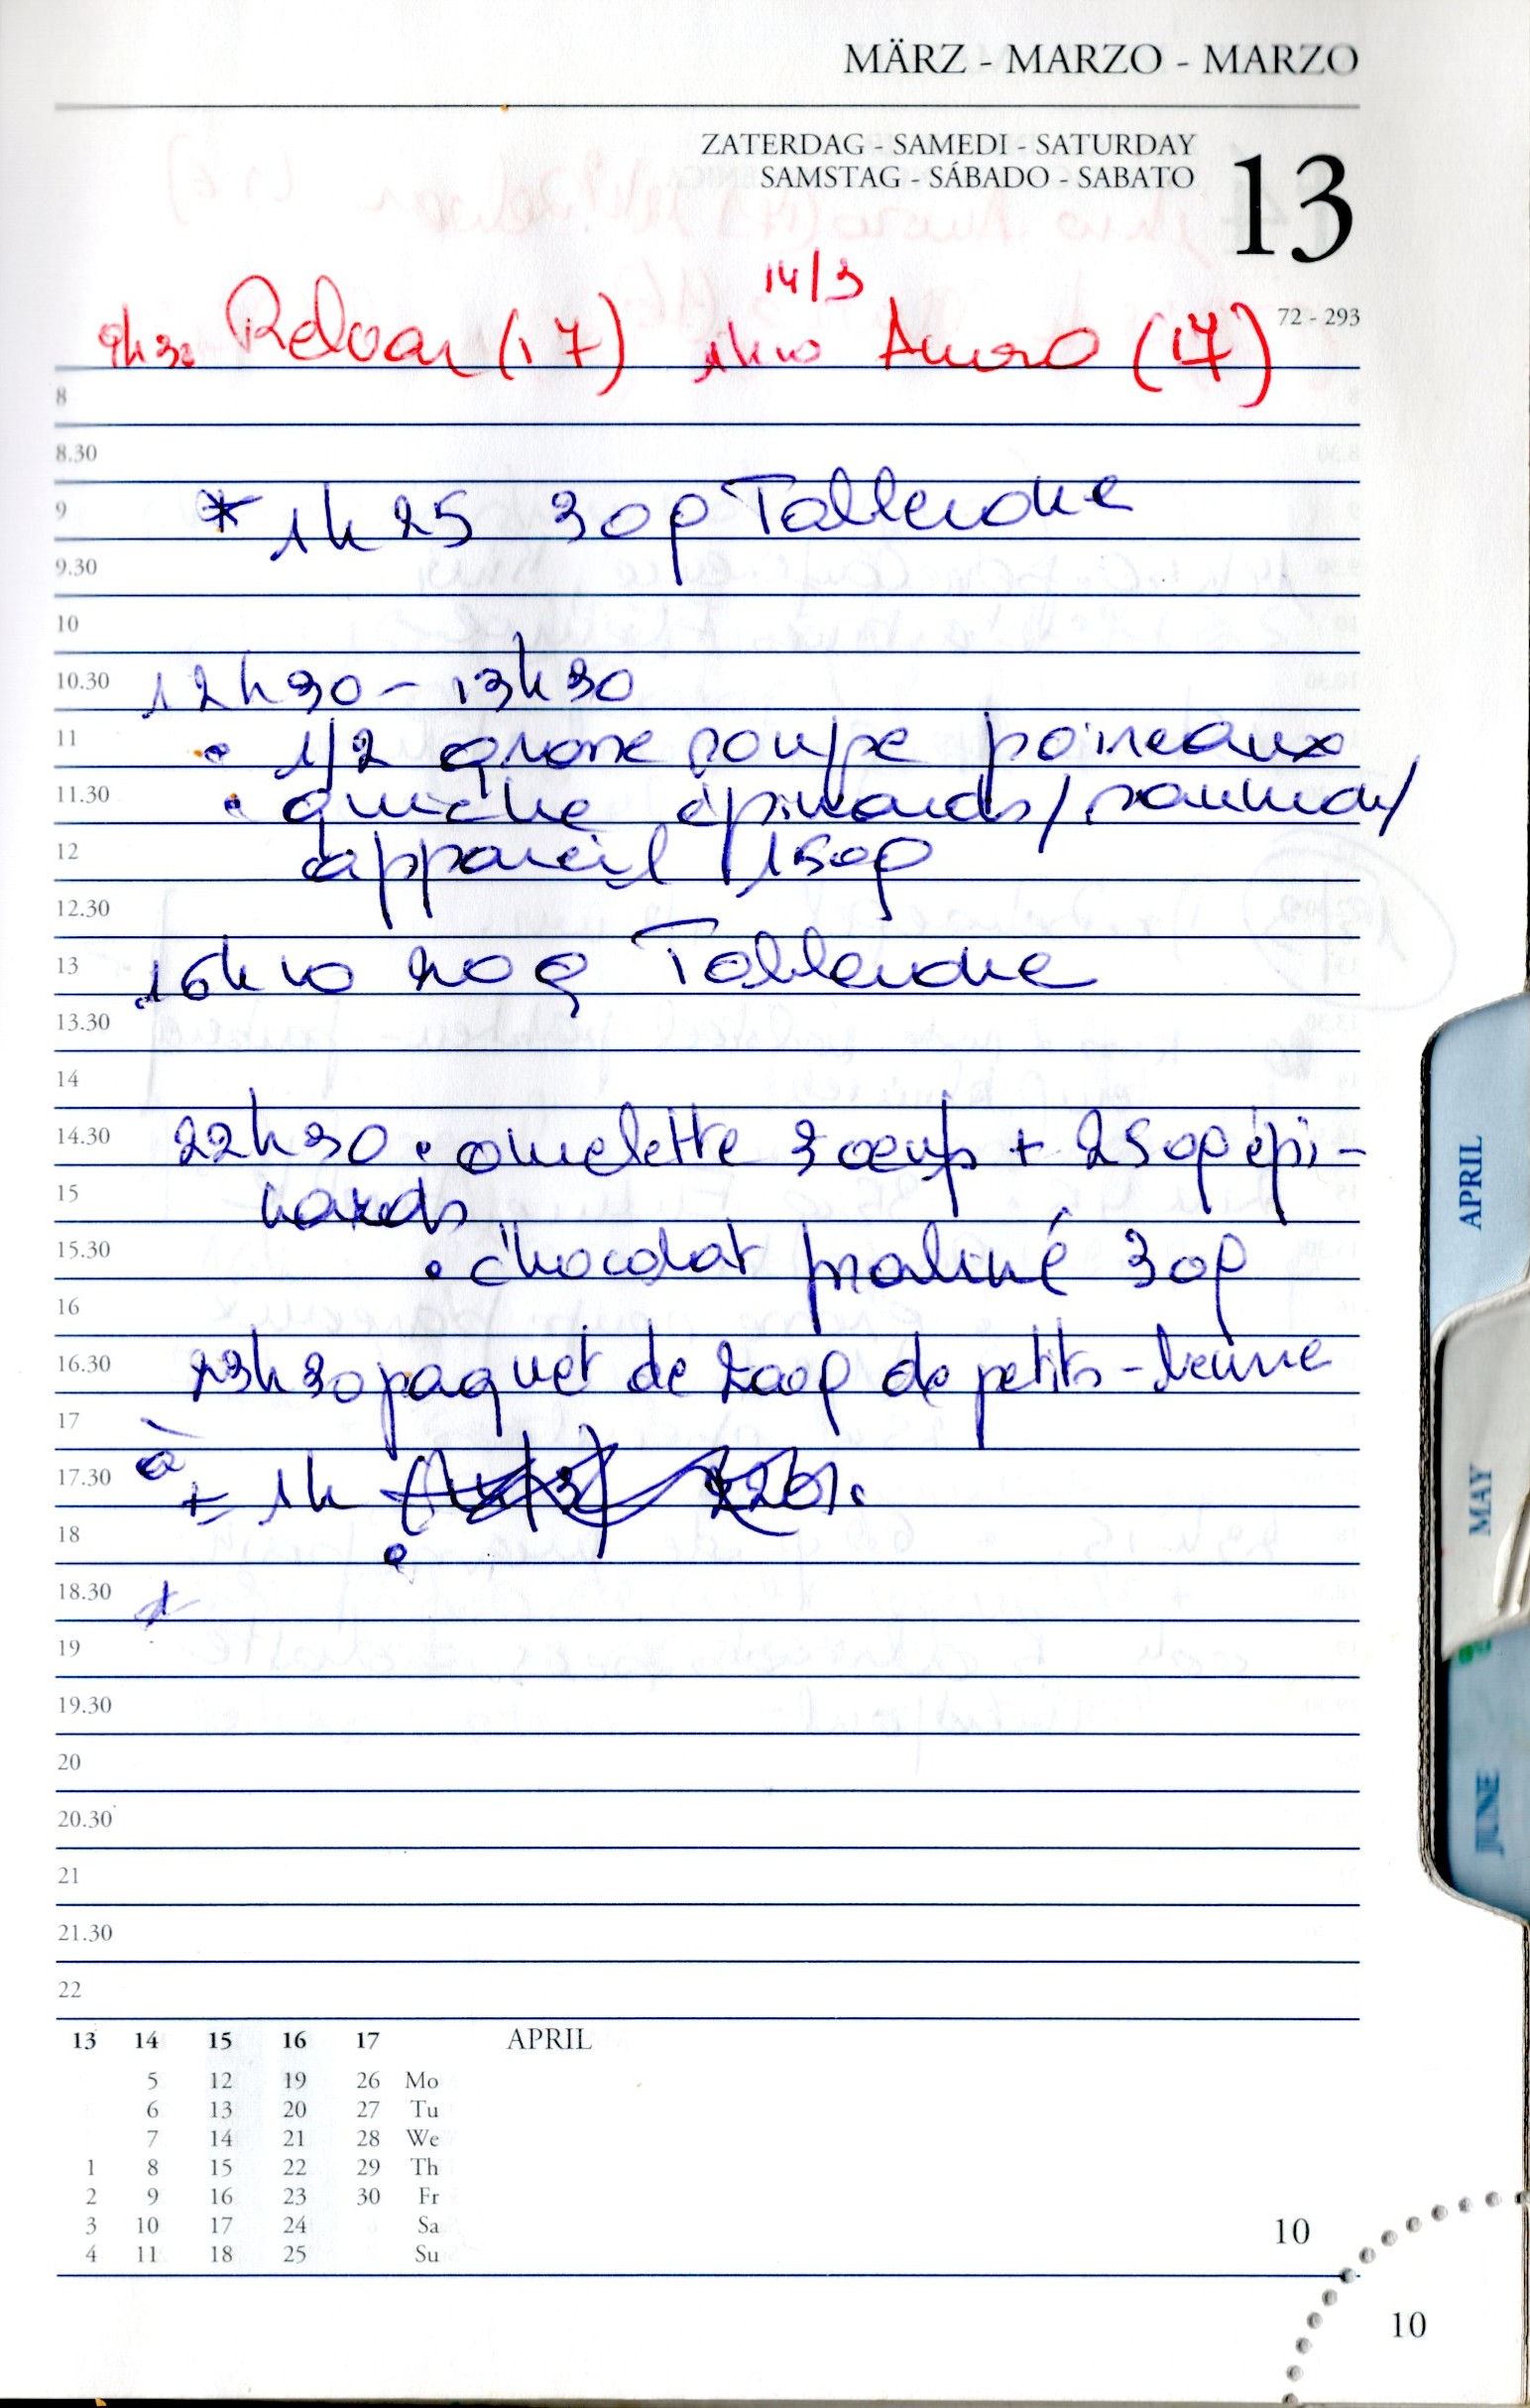 MÄRZ - MARZO - MARZO
ZATERDAG - SAMEDI - SATURDAY
SAMSTAG - SÁBADO - SABATO
13
72 - 293
14/3
9h30 Relvar (17) 1h10 (17)
8
8.30
9 * 1h25 30g Toblerone
9.30
10
10.30 12h30 - 13h30
11 • 1/2 grosse soupe poireaux
11.30 • quiche épinards/saumon/
12 appareil 150g
12.30
13 16h10 20g Toblerone
13.30
14
14.30 22h30 • omelette 3 oeufs + 250g épi-
15 nards
15.30 • chocolat praliné 30g
16
16.30 23h30 paquet de 200g de petits-beurre
17 à
17.30 ± 1h
18
18.30
19
19.30
20
20.30
21
21.30
22
13 14 15 16 17 APRIL
5 12 19 26 Mo
6 13 20 27 Tu
7 14 21 28 We
1 8 15 22 29 Th
2 9 16 23 30 Fr
3 10 17 24 Sa
4 11 18 25 Su
10
10
APRIL
MAY
JUNE